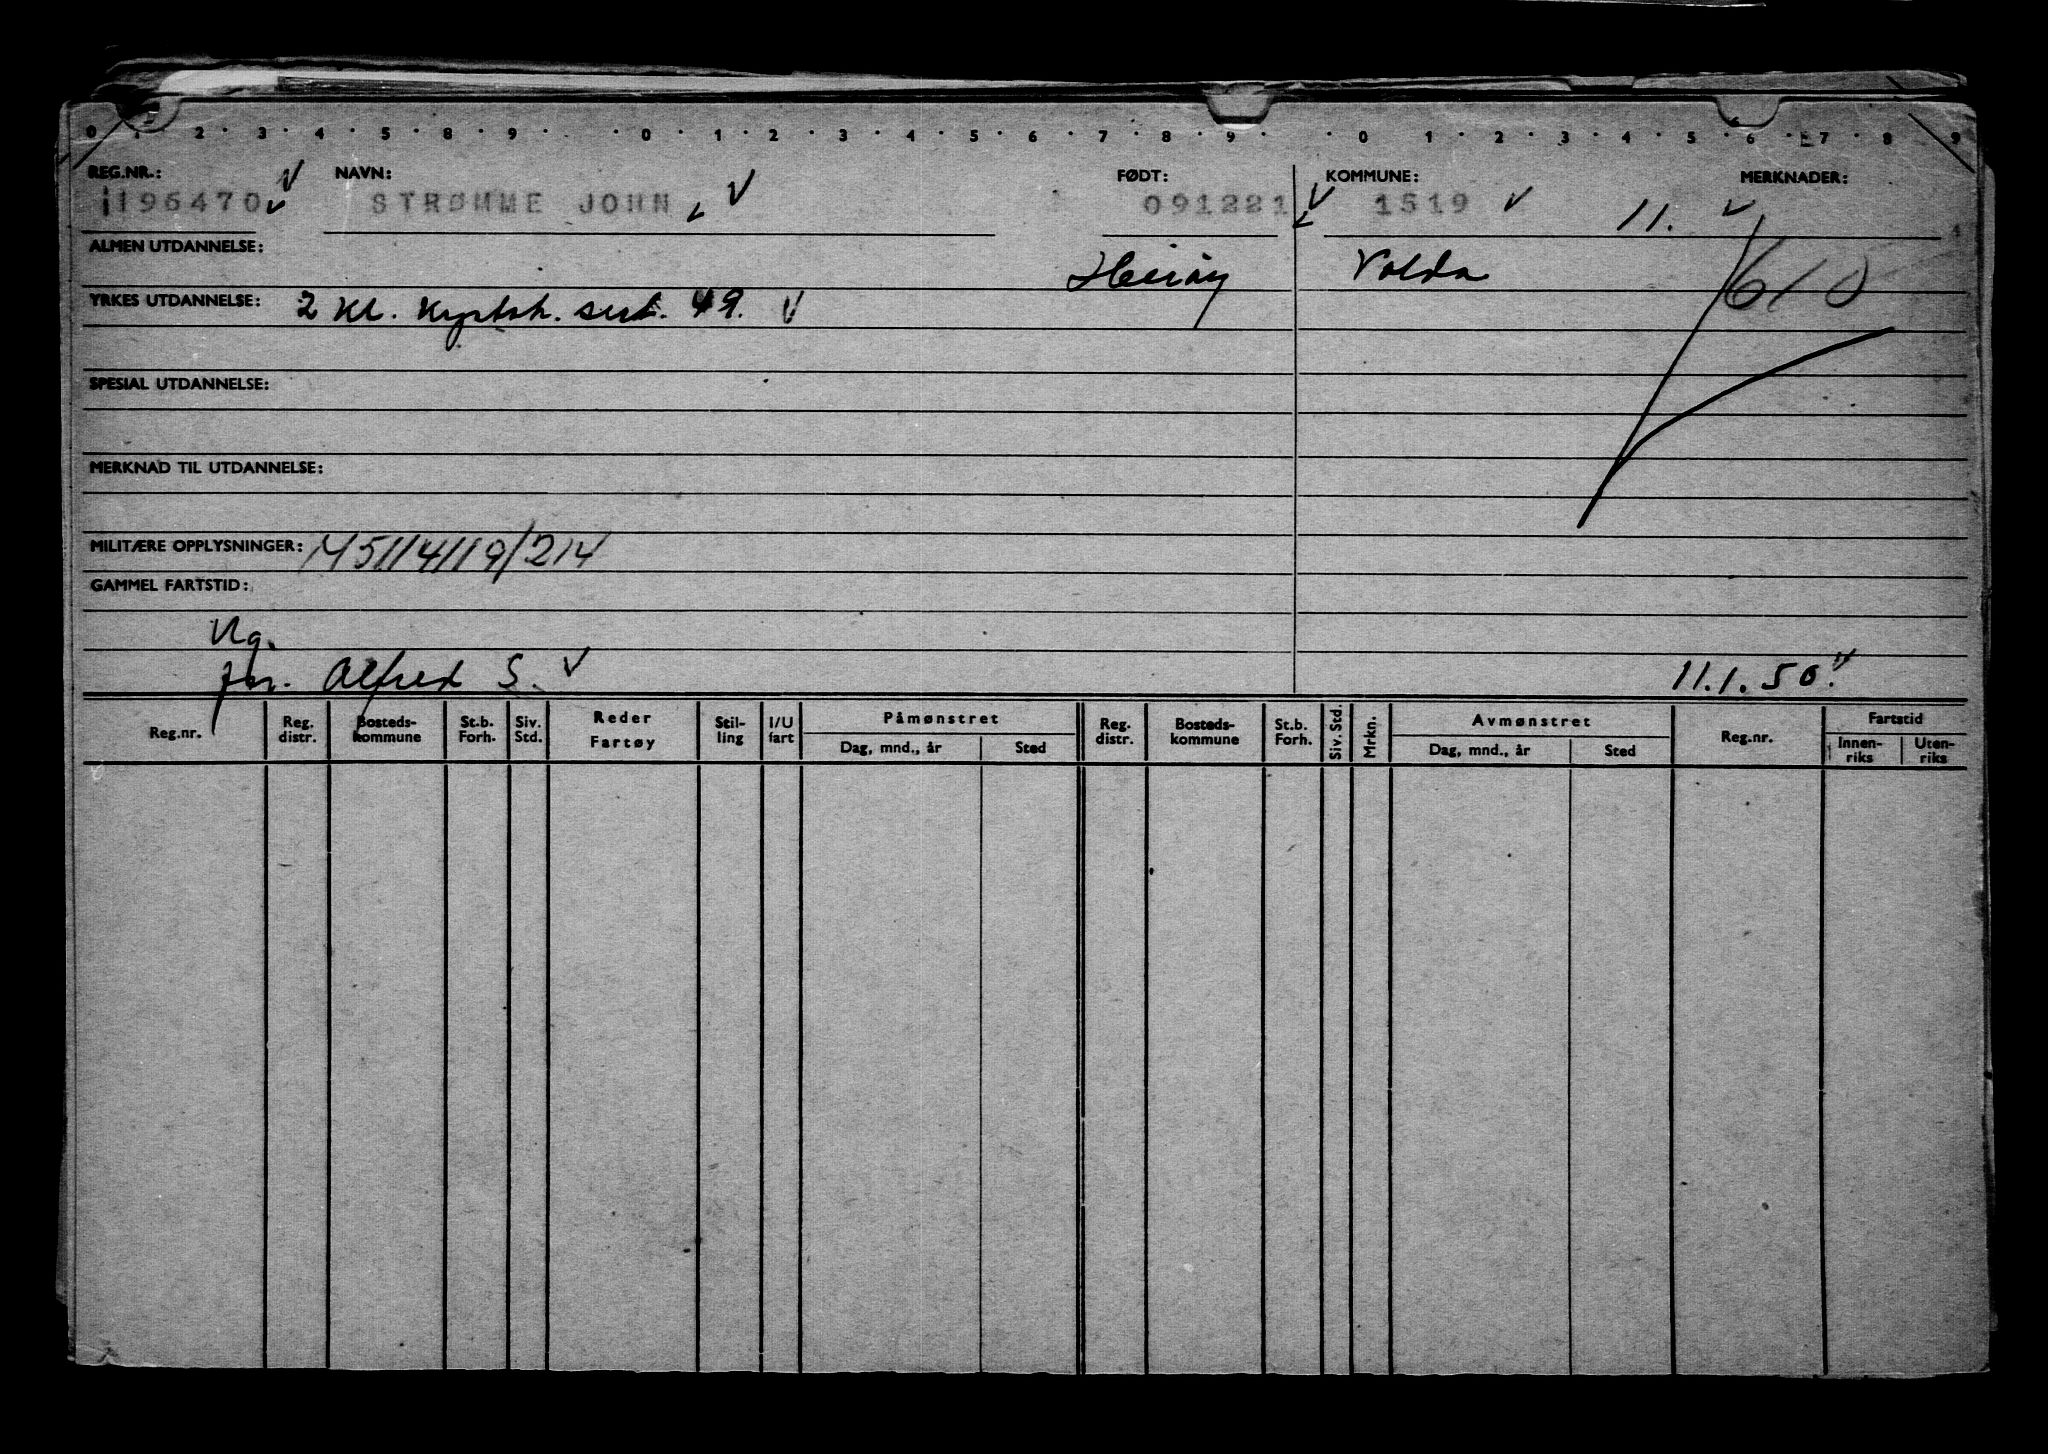 0 1 2 3 4 5 8 9 0 1 2 3 4 5 6 7 8 9 0 1 2 3 4 5 6 7 8 9
REG.NR.: NAVN: FØDT: KOMMUNE: MERKNADER:
196470 STRØMME JOHN 091221 1519 11.
ALMEN UTDANNELSE: Volda 610
YRKES UTDANNELSE: 2 kl. kystsk. sert. 49.
SPESIAL UTDANNELSE:
MERKNAD TIL UTDANNELSE:
MILITÆRE OPPLYSNINGER: M5114119/214
GAMMEL FARTSTID:
Ug.
far. Alfred S. 11.1.50.
Reg.nr. Reg. distr. Bosteds-kommune St.b. Forh. Siv. Std. Reder Fartøy Stil-ling I/U fart Påmønstret Dag, mnd., år Sted Reg. distr. Bosteds-kommune St.b. Forh. Siv. Std. Mrkn. Avmønstret Dag, mnd., år Sted Reg.nr. Fartstid Innen-riks Uten-riks